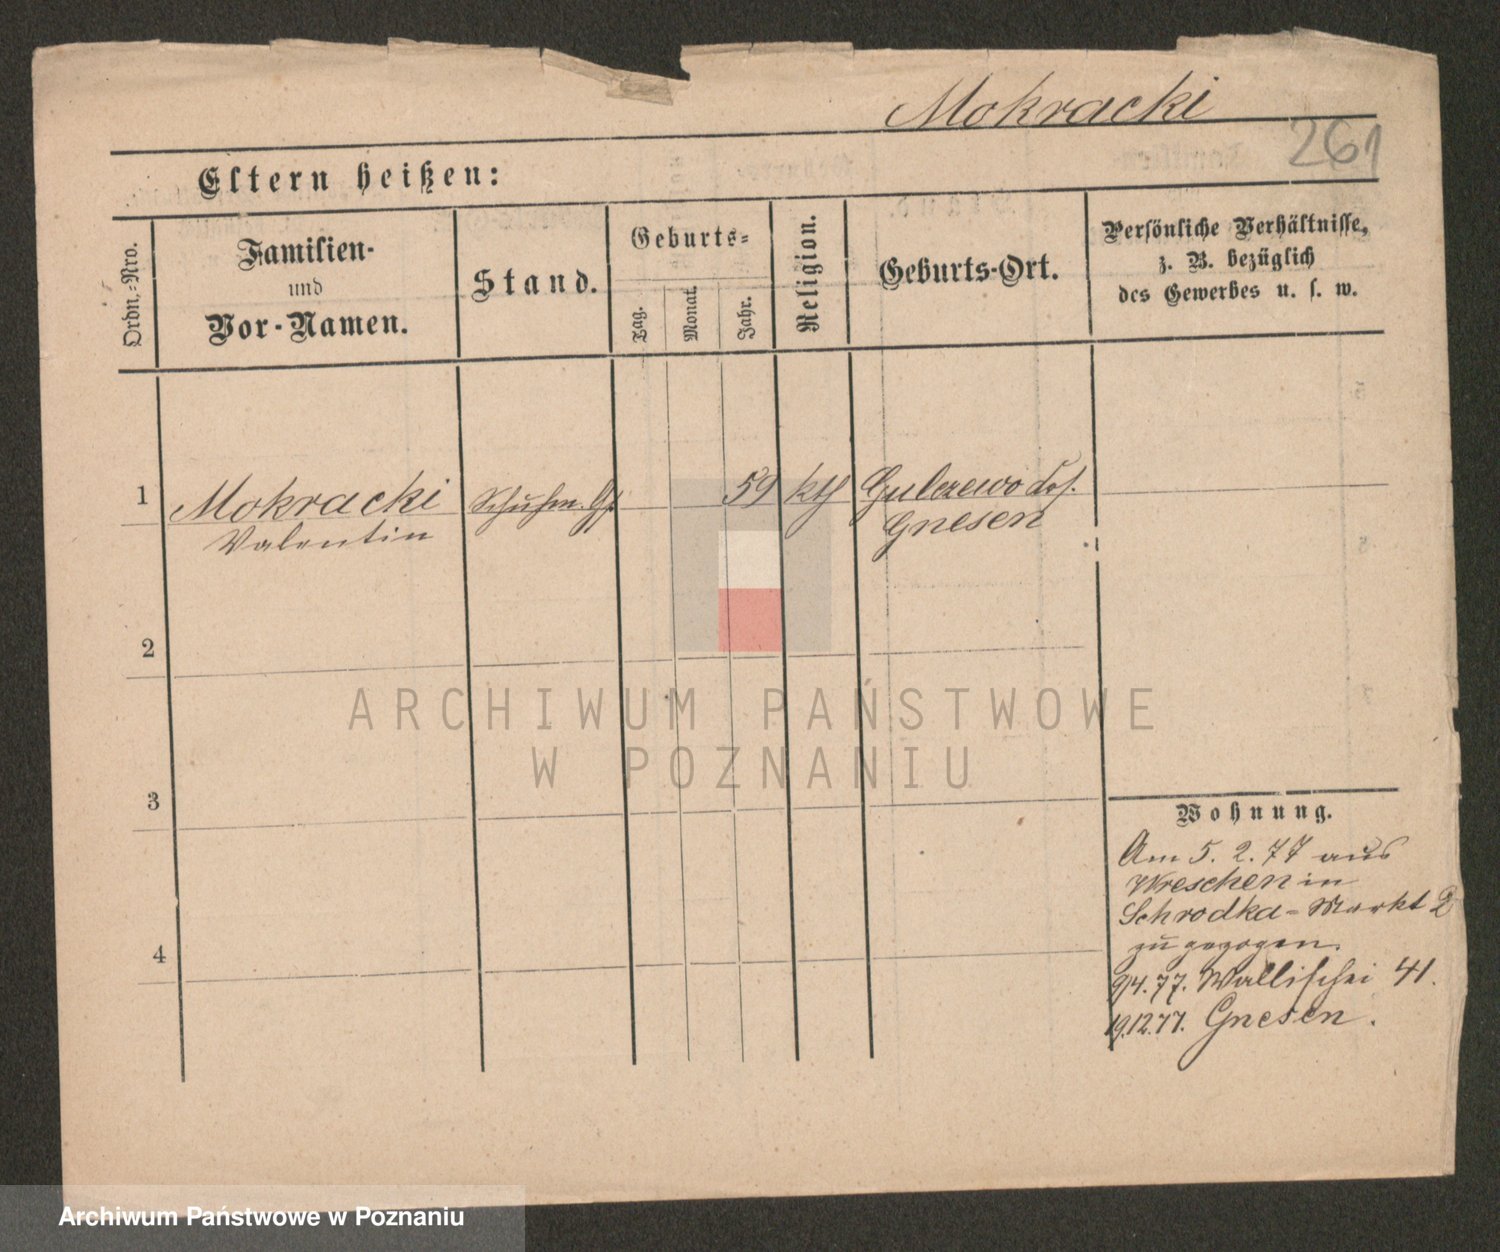 Mokracki
261
Eltern heißen:
Ordn.-Nro.
Familien-
und
Vor-Namen.
Stand.
Geburts-
Tag.
Monat.
Jahr.
Religion.
Geburts-Ort.
Persönliche Verhältnisse,
z. B. bezüglich
des Gewerbes u. s. w.
1
Mokracki
Valentin
Schuhm. Gs.
59
kth
Gulczewo
Gnesen
2
3
4
ARCHIWUM PAŃSTWOWE
W POZNANIU
Wohnung.
Am 5. 2. 77 aus
Wreschen in
Schrodka-Markt 2
zugezogen.
9/4. 77. Wallischei 41.
19.12.77. Gnesen.
Archiwum Państwowe w Poznaniu